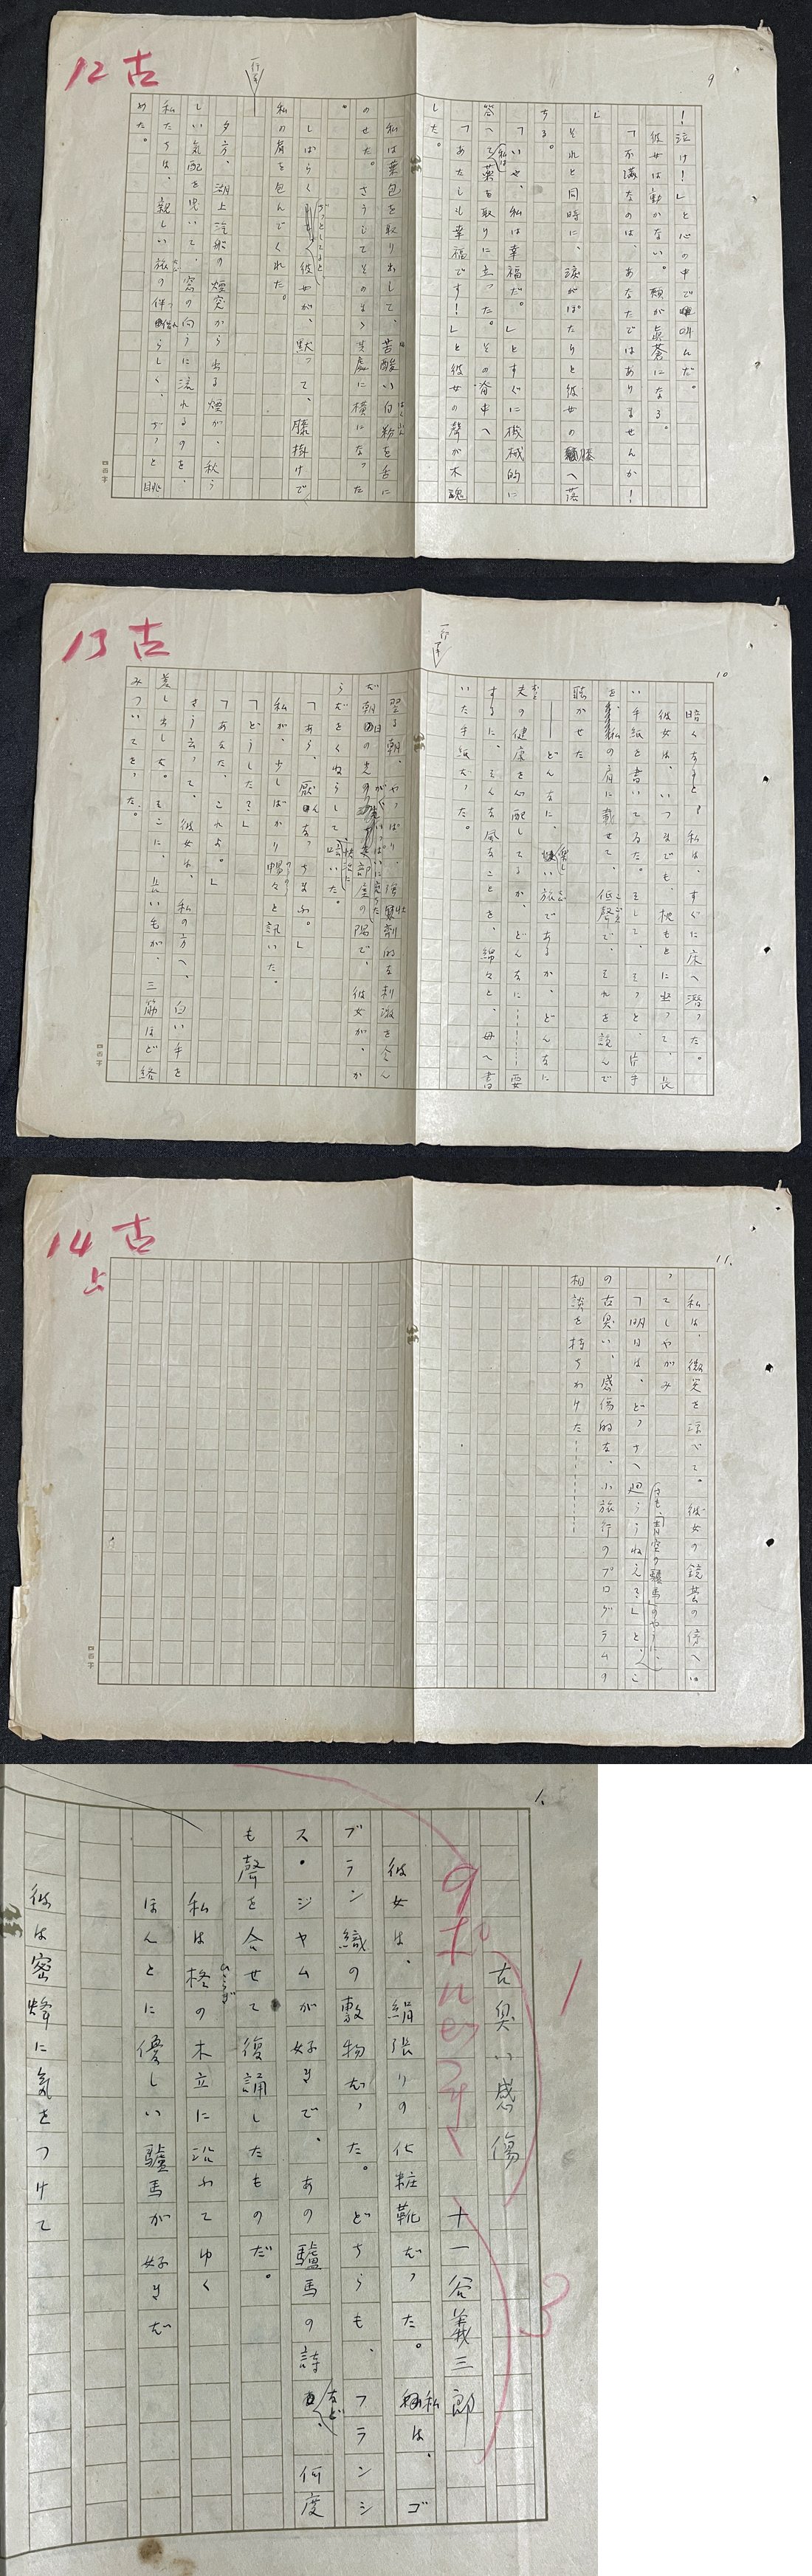 12 古
9
一行アキ
！泣け！」と心の中で叫んだ。
彼女は動かない。頬が真蒼になる。
「不満なのは、あなたではありませんか！
」
それと同時に、涙がぽたりと彼女の膝へ落
ちる。
「いや、私は幸福だ。」とすぐに機械的に
答へて、私は薬を取りに立った。その背中へ
「あたしも幸福です！」と彼女の聲が木魂
した。
私は薬包を取り出して、苦酸い白粉を舌に
のせた。さうしてそのまゝ其處に横になった
。
しばらくぢっとしてると、彼女が、黙って、膝掛けで
私の肩を包んでくれた。
夕方、湖上汽船の煙突から出る煙が、秋ら
しい気配を曳いて、窓の向うに流れるのを、
私たちは、親しい旅の伴侶らしく、ぢっと眺
めた。
四百字
13 古
10
一行アキ
暗くなると、私は、すぐに床へ潜った。
彼女は、いつまでも、枕もとに坐って、長
い手紙を書いてゐた。そして、そっと、片手
を私の肩に載せて、低聲で、それを読んで
聴かせた
——どんなに、楽しい旅であるか、どんなに
夫の健康を心配してるか、どんなに……要
するに、そんな風なことを、綿々と、母へ書
いた手紙だった。
翌る朝、やっぱり、清涼剤的な刺激を含ん
だ朝の光がいっぱいに充ちた部屋の隅で、彼女が、か
らだをくねらして快活に呟いた。
「あら、厭んなっちまふ。」
私が、少しばかり惶々と訊いた。
「どうしたて？」
「あなた、これよ。」
さう云って、彼女は、私の方へ、白い手を
差し出した。そこに、長い毛が、三筋ほど絡
みついてをった。
四百字
14 古
11.
私は、微笑を浮べて。彼女の鏡䑓の傍へい
ってしゃがみ
「明日は、どっちへ廻らうねえ？」と、
今も、「青空の驢馬」のやうに、
こ
の古臭い、感傷的な、小旅行のプログラムの
相談を持ちかけた……
四百字
1.
1
古臭い感傷
9ポ
十一谷義三郎
3
彼女は、絹張りの化粧靴だった。私は、ゴ
ブラン織の敷物だった。どちらも、フランシ
ス・ジャムが好きで、あの驢馬の詩など、何度
も聲を合せて復誦したものだ。
私は柊の木立に沿ふてゆく
ひひらぎ
ほんとに優しい驢馬が好きだ
彼は密蜂に気をつけて